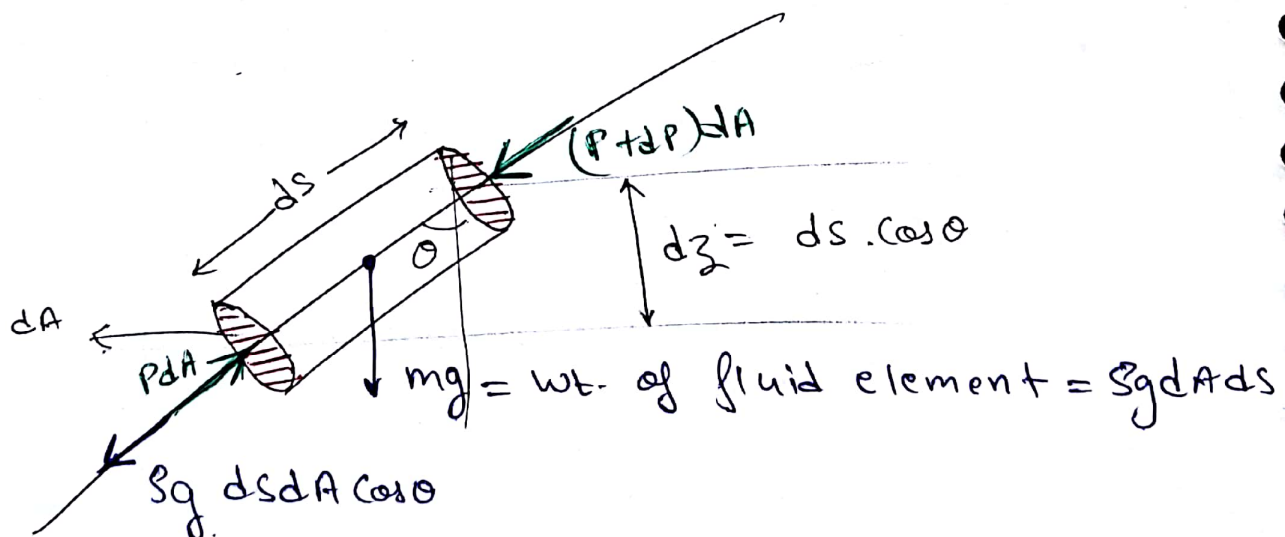 (P+dP)dA
ds
dz = ds.Cosθ
θ
dA
PdA
mg = Wt. of fluid element = ρgdAds
ρg dsdA Cosθ